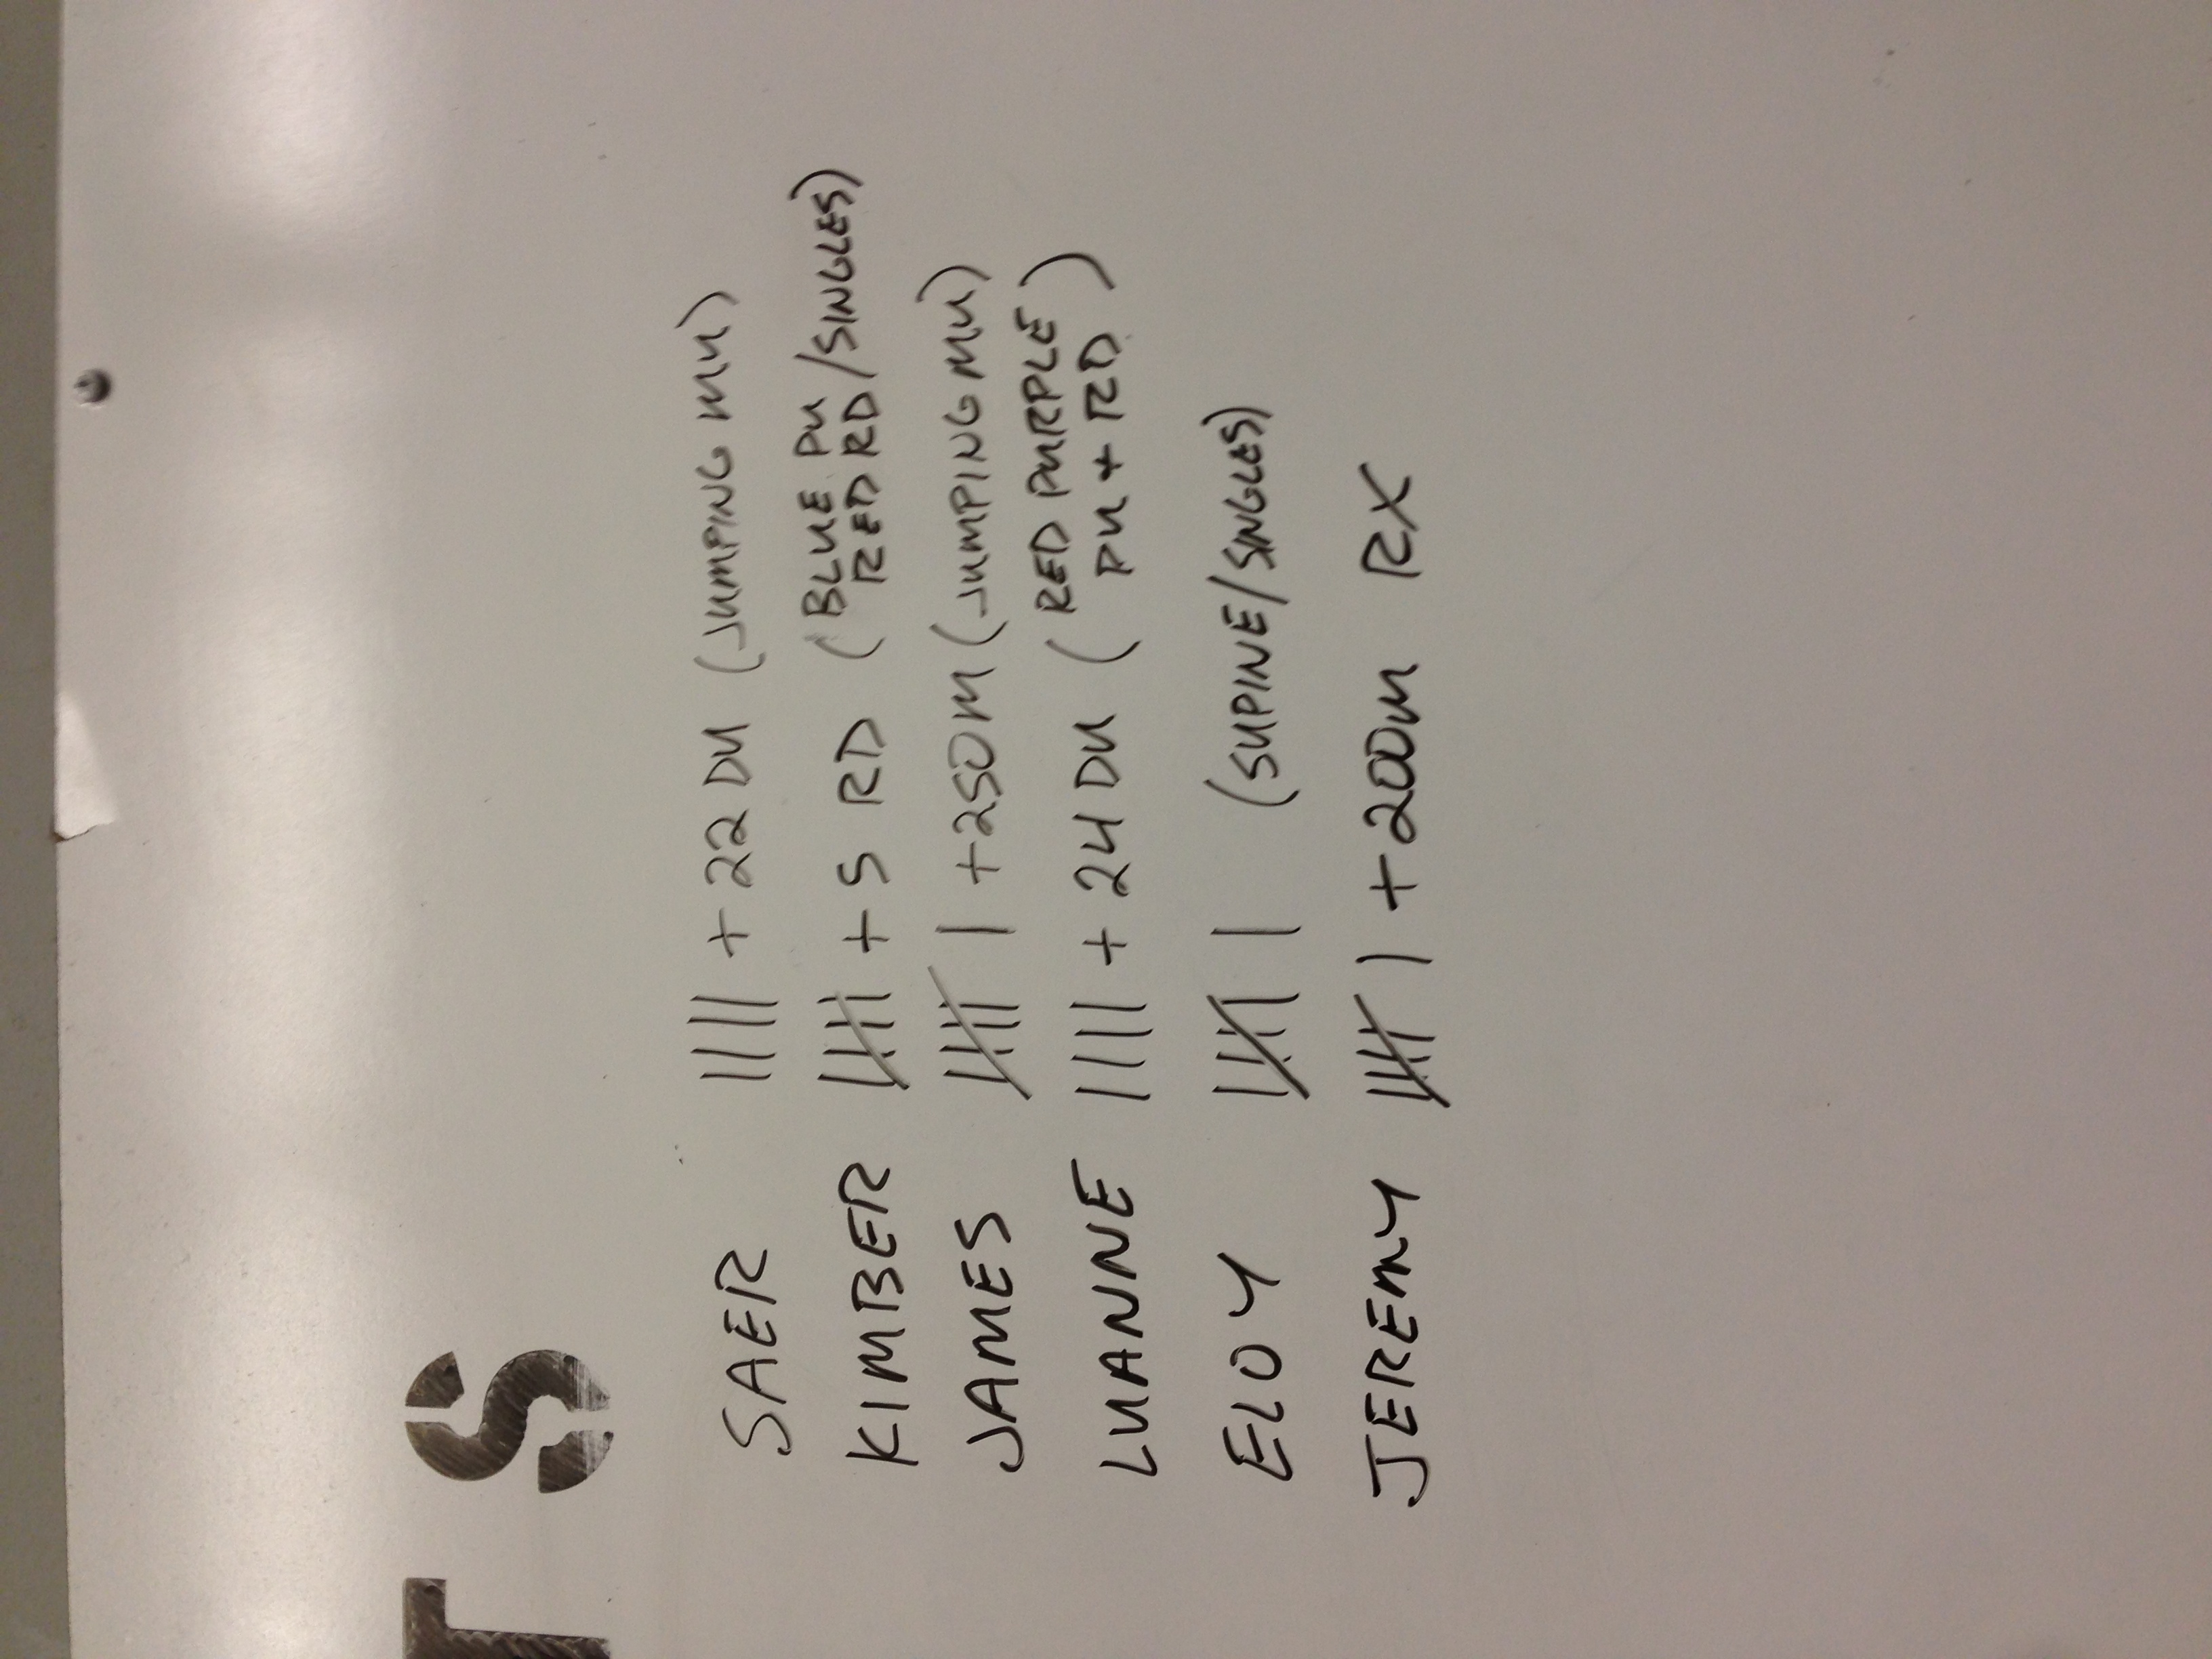 TS
SAER |||| + 22 DU (JUMPING MU)
KIMBER 卌 + 5 RD (BLUE PU
RED RD/SINGLES)
JAMES 卌 | + 250M (JUMPING MU)
LUANNE |||| + 24 DU (RED PURPLE
PU + RD)
ELOY 卌 | (SUPINE/SINGLES)
JEREMY 卌 | + 200M RX